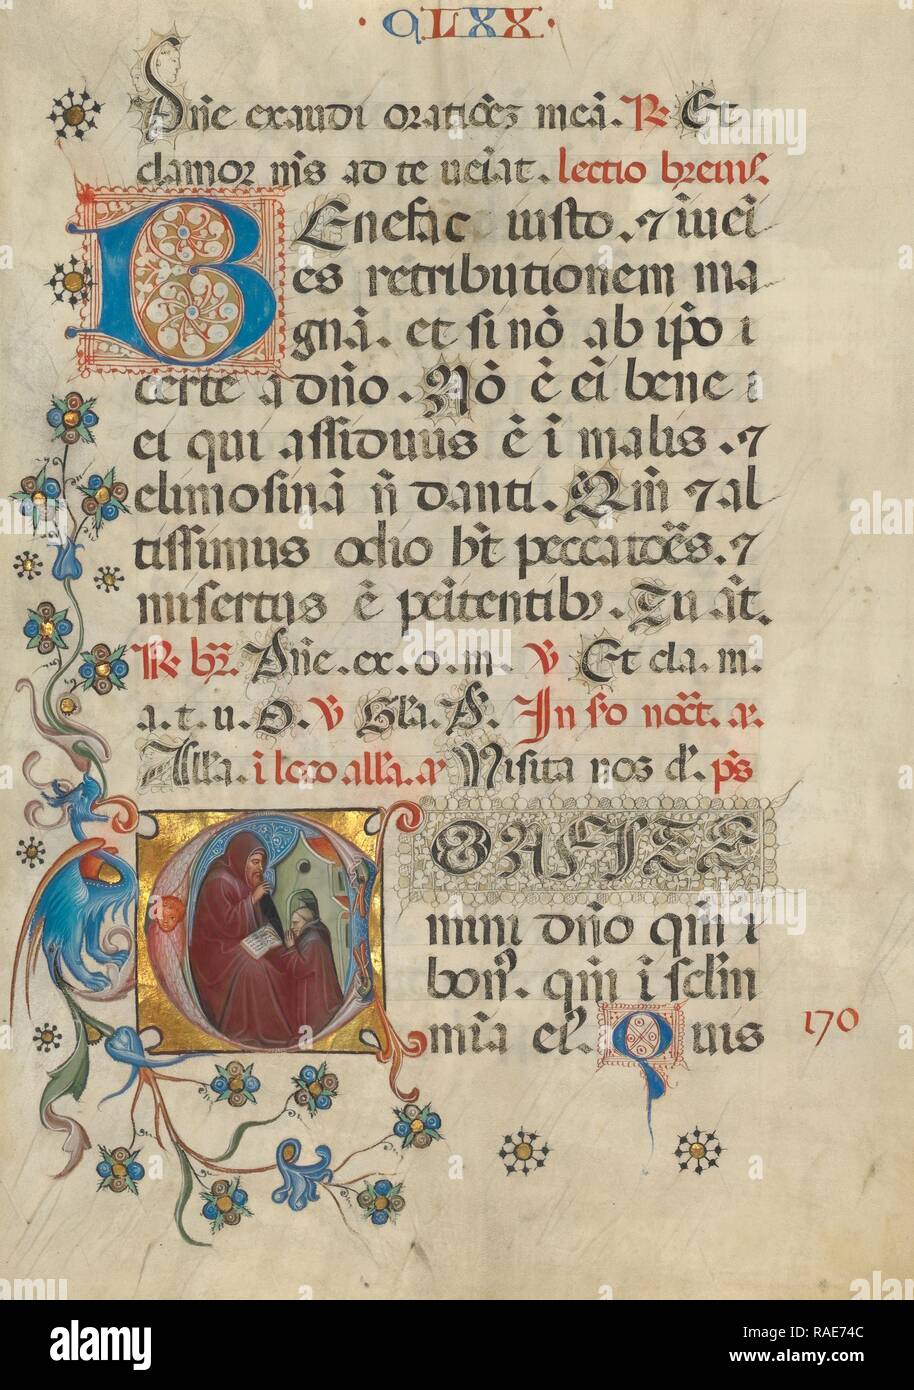 · CLXX ·
Dñe exaudi oratiõez meã. R Et
clamor m̃s ad te ueĩat. lectio breuis.
BEnefac iusto. ⁊ ĩueĩ
es retributionem ma
gnã. et si nõ ab ip̃o i
certe a dño. Nõ ẽ eĩ bene i
ei qui assiduus ẽ ĩ malis. ⁊
elimosinã ñ danti. Qm̃ ⁊ al
tissimus odio h̃t peccatoẽs. ⁊
misertus ẽ peĩtentib9. Tu aũt.
R br̃. Dñe. ex. o. m. V Et cla. m.
a. t. u. D. V Gl̃a. P̃. In so noct̃. a.
All̃a. i loco all̃a. a Uisita nos d̃. p̃s
COnFITE
mini dño qm̃ i
bon9. qm̃ ĩ sclm̃
mĩa el9. Quis
170
alamy stock photo
alamy
Image ID: RAE74C
www.alamy.com